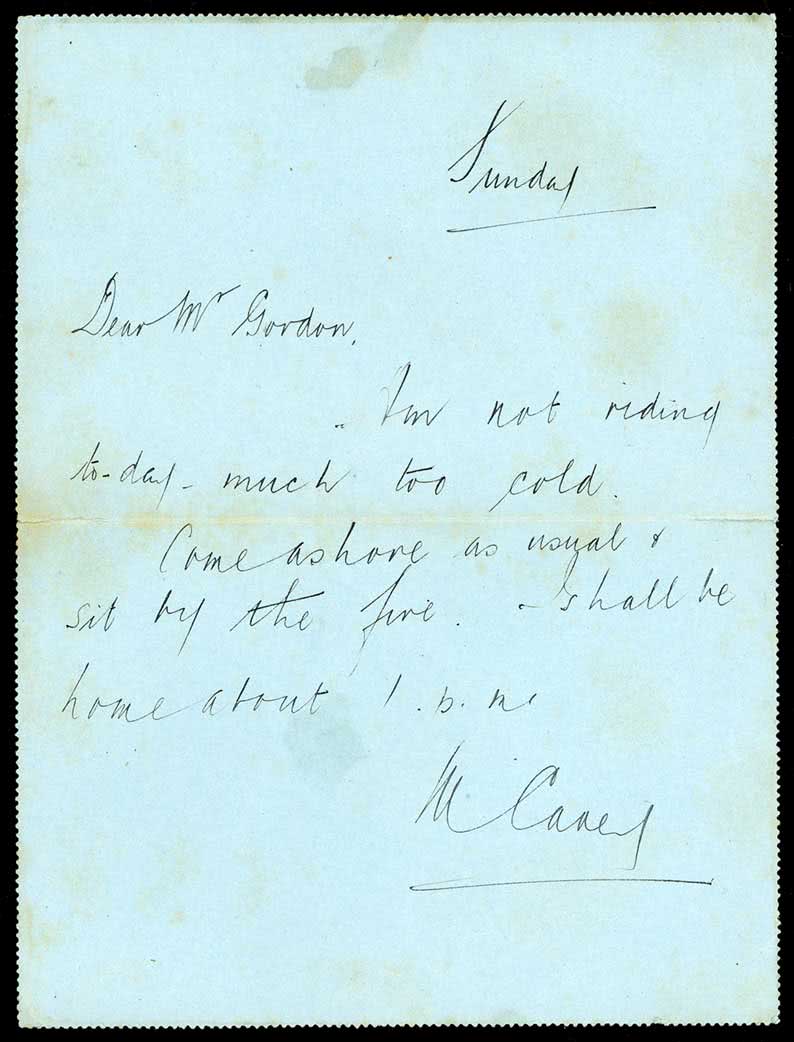 Sunday
Dear Mr Gordon,
I'm not riding
to-day - much too cold.
Come ashore as usual &
sit by the fire. - I shall be
home about 1 p.m.
M